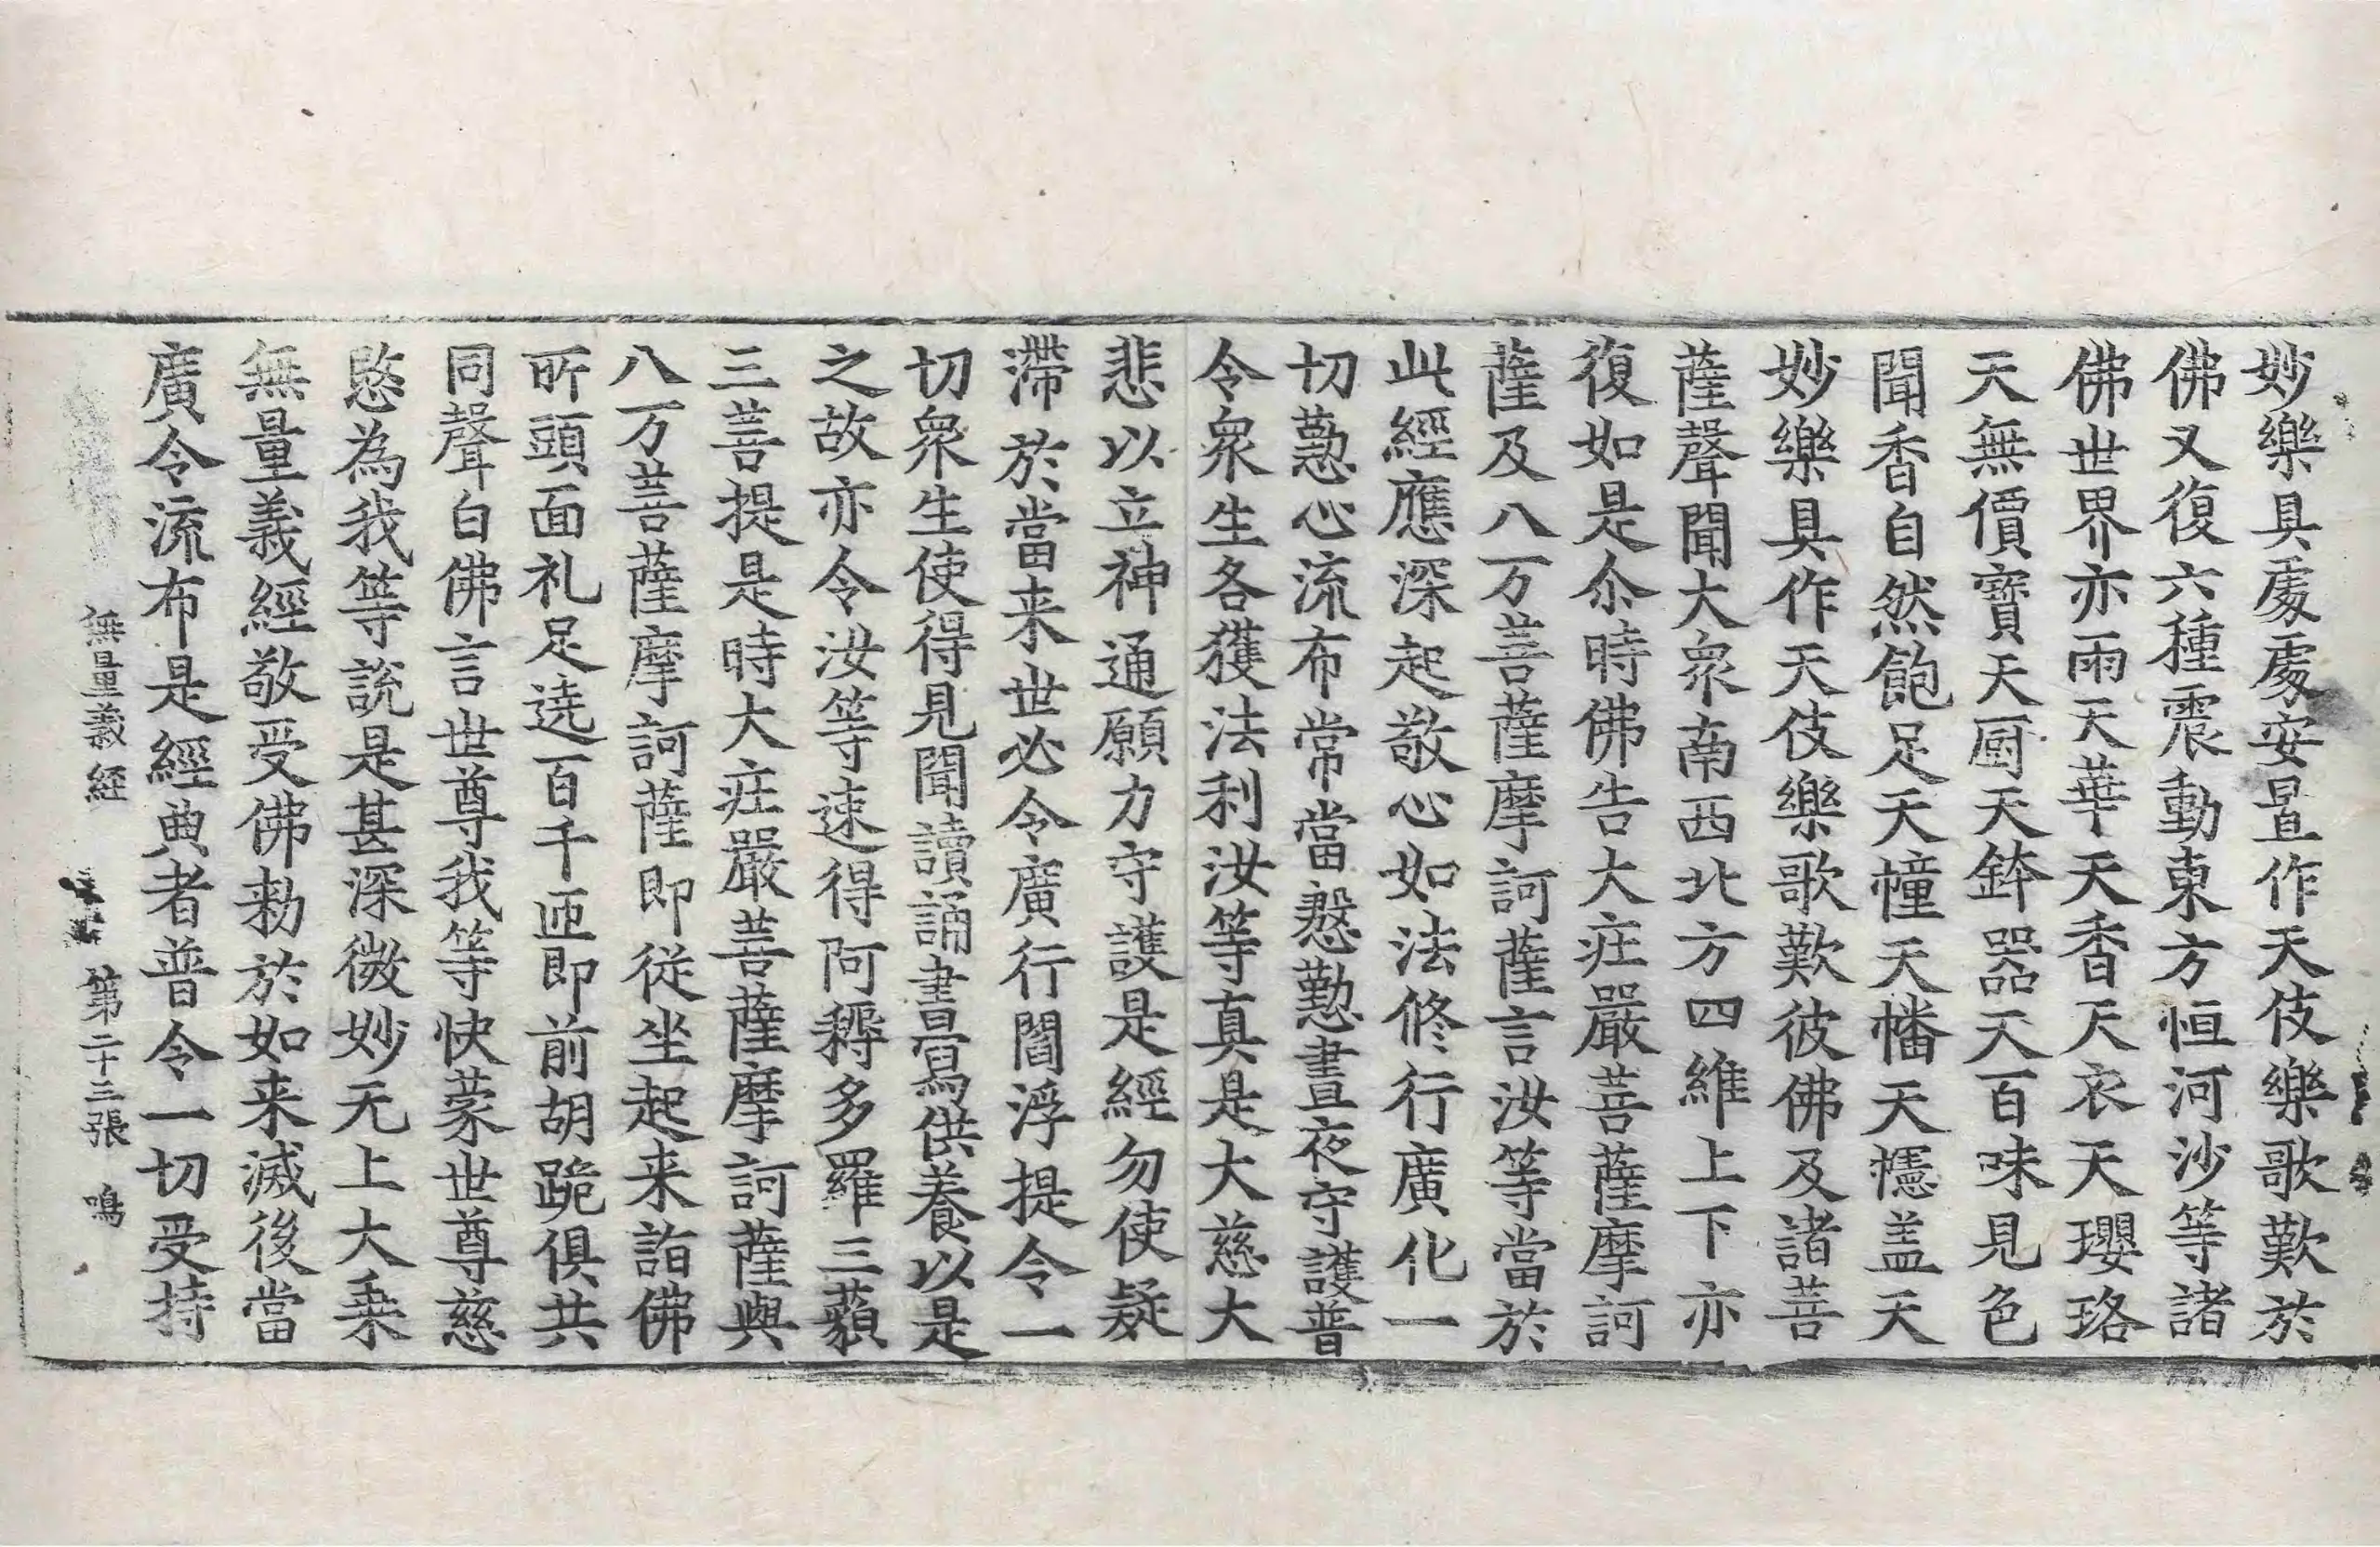 妙樂具處處安置作天伎樂歌歎於
佛又復六種震動東方恒河沙等諸
佛世界亦雨天華天香天衣天瓔珞
天無價寶天厨天鉢器天百味見色
聞香自然飽足天幢天幡天幰盖天
妙樂具作天伎樂歌歎彼佛及諸菩
薩聲聞大衆南西北方四維上下亦
復如是尒時佛告大庄嚴菩薩摩訶
薩及八万菩薩摩訶薩言汝等當於
此經應深起敬心如法修行廣化一
切懃心流布常當慇懃晝夜守護普
令衆生各獲法利汝等真是大慈大
悲以立神通願力守護是經勿使疑
滯於當来世必令廣行閻浮提令一
切衆生使得見聞讀誦書寫供養以是
之故亦令汝等速得阿耨多羅三藐
三菩提是時大庄嚴菩薩摩訶薩與
八万菩薩摩訶薩即從坐起来詣佛
所頭面礼足遶百千匝即前胡跪俱共
同聲白佛言世尊我等快蒙世尊慈
愍為我等說是甚深微妙无上大乗
無量義經敬受佛勑於如来滅後當
廣令流布是經典者普令一切受持
無量義経 第二十三張 鳴